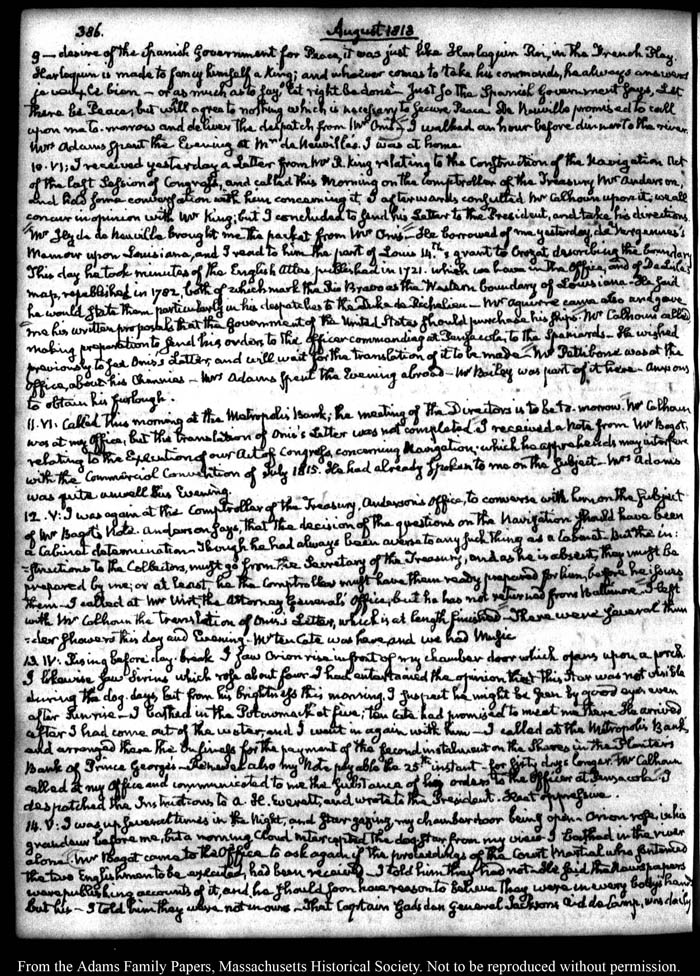 386.
August 1818
9 — desire of the Spanish Government for Peace, it was just like Harlequin Roi, in the French Play.
Harlequin is made to fancy himself a King; and whoever comes to take his commands, he always answers
je vais le bien — or as much as to say, let right be done. Just so the Spanish Government says, Let
there be Peace; but will agree to nothing which is necessary to secure Peace. De Neuville promised to call
upon me to-morrow and deliver the despatch from Mr Onis. I walked an hour before dinner to the river
Mrs Adams spent the Evening at Mr de Neuville's. I was at home.
10. VI; I received yesterday a Letter from Mr R. King relating to the Construction of the Navigation Act
of the last Session of Congress, and called this Morning on the Comptroller of the Treasury Mr Anderson,
and had some conversation with him concerning it. I afterwards consulted Mr Calhoun upon it; we all
concur in opinion with Mr King; but I concluded to send his Letter to the President, and take his directions.
Mr Hyde de Neuville brought me the packet from Mr Onis — He borrowed of me yesterday, de Vergennes's
Memoir upon Louisiana, and I read to him the part of Louis 14.th's grant to Crozat describing the boundary
This day he took minutes of the English Atlas published in 1721. which we have in the Office, and of De Lisle's
map, republished in 1782, both of which mark the Rio Bravo as the Western boundary of Louisiana. He said
he would state them particularly in his despatches to the Duke de Richelieu — Mr Aguirre came also and gave
me his written proposals that the Government of the United States should purchase his Ships. Mr Calhoun called
making preparation to send his orders to the Officer commanding at Pensacola, to the Spaniards. He wished
previously to see Onis's Letter, and will wait for the translation of it to be made — Mr Pettibone was at the
Office, about his Chances — Mrs Adams spent the Evening abroad — Mr Bailey was part of it here. Anxious
to obtain his furlough.
11. VI. Called this morning at the Metropolis Bank; the meeting of the Directors is to be to-morrow. Mr Calhoun
was at my Office; but the translation of Onis's Letter was not completed. I received a Note from Mr Bagot,
relating to the Execution of our Act of Congress, concerning Navigation; which he apprehends may interfere
with the Commercial Convention of July 1815. He had already spoken to me on the subject — Mrs Adams
was quite unwell this Evening.
12. V. I was again at the Comptroller of the Treasury, Anderson's Office, to converse with him on the subject
of Mr Bagot's Note. Anderson says, that the decision of the questions on the Navigation should have been
a Cabinet determination. Though he had always been averse to any such thing as a Cabinet. But the in:
:structions to the Collectors, must go from the Secretary of the Treasury, and as he is absent, they must be
prepared by me; or at least, he the Comptroller must have them ready prepared for him, before he issues
them — I called at Mr Wirt, the Attorney General's Office, but he has not returned from Baltimore. I left
with Mr Calhoun the translation of Onis's Letter, which is at length finished — There were several thun
:der showers this day and Evening. Mr ten Cate was here, and we had Music
13. IV. Rising before day-break I saw Orion rise in front of my chamber door which opens upon a porch.
I likewise saw Sirius which rose about four. I had entertained the opinion that this Star was not visible
during the dog-days, but from his brightness this morning, I suspect he might be seen by good eyes even
after Sunrise — I bathed in the Potowmack at five; ten Cate had promised to meet me there. He arrived
after I had come out of the water; and I went in again with him — I called at the Metropolis Bank,
and arranged there the business for the payment of the second instalment on the Shares in the Planters
Bank of Prince Georges — Renewed also my Note payable the 25th instant — for sixty days longer. Mr Calhoun
called at my Office and communicated to me the substance of his orders to the Officer at Pensacola. I
despatched the Instructions to A. H. Everett, and wrote to the President. Heat oppressive.
14. V. I was up several times in the Night, and Star gazing, my chamber door being open. Orion rose, in his
grandeur before me, but a morning Cloud intercepted the dog Star from my view. I bathed in the river
alone. Mr Bagot came to the Office to ask again if the proceedings of the Court Martial who sentenced
the two Englishmen to be executed, had been received — I told him they had not. He said the Newspapers
were publishing accounts of it, and he should soon have reason to believe they were in every body's hands
but his — I told him they were not in ours — That Captain Gadsden General Jackson's Aid de Camp, was daily
From the Adams Family Papers, Massachusetts Historical Society. Not to be reproduced without permission.